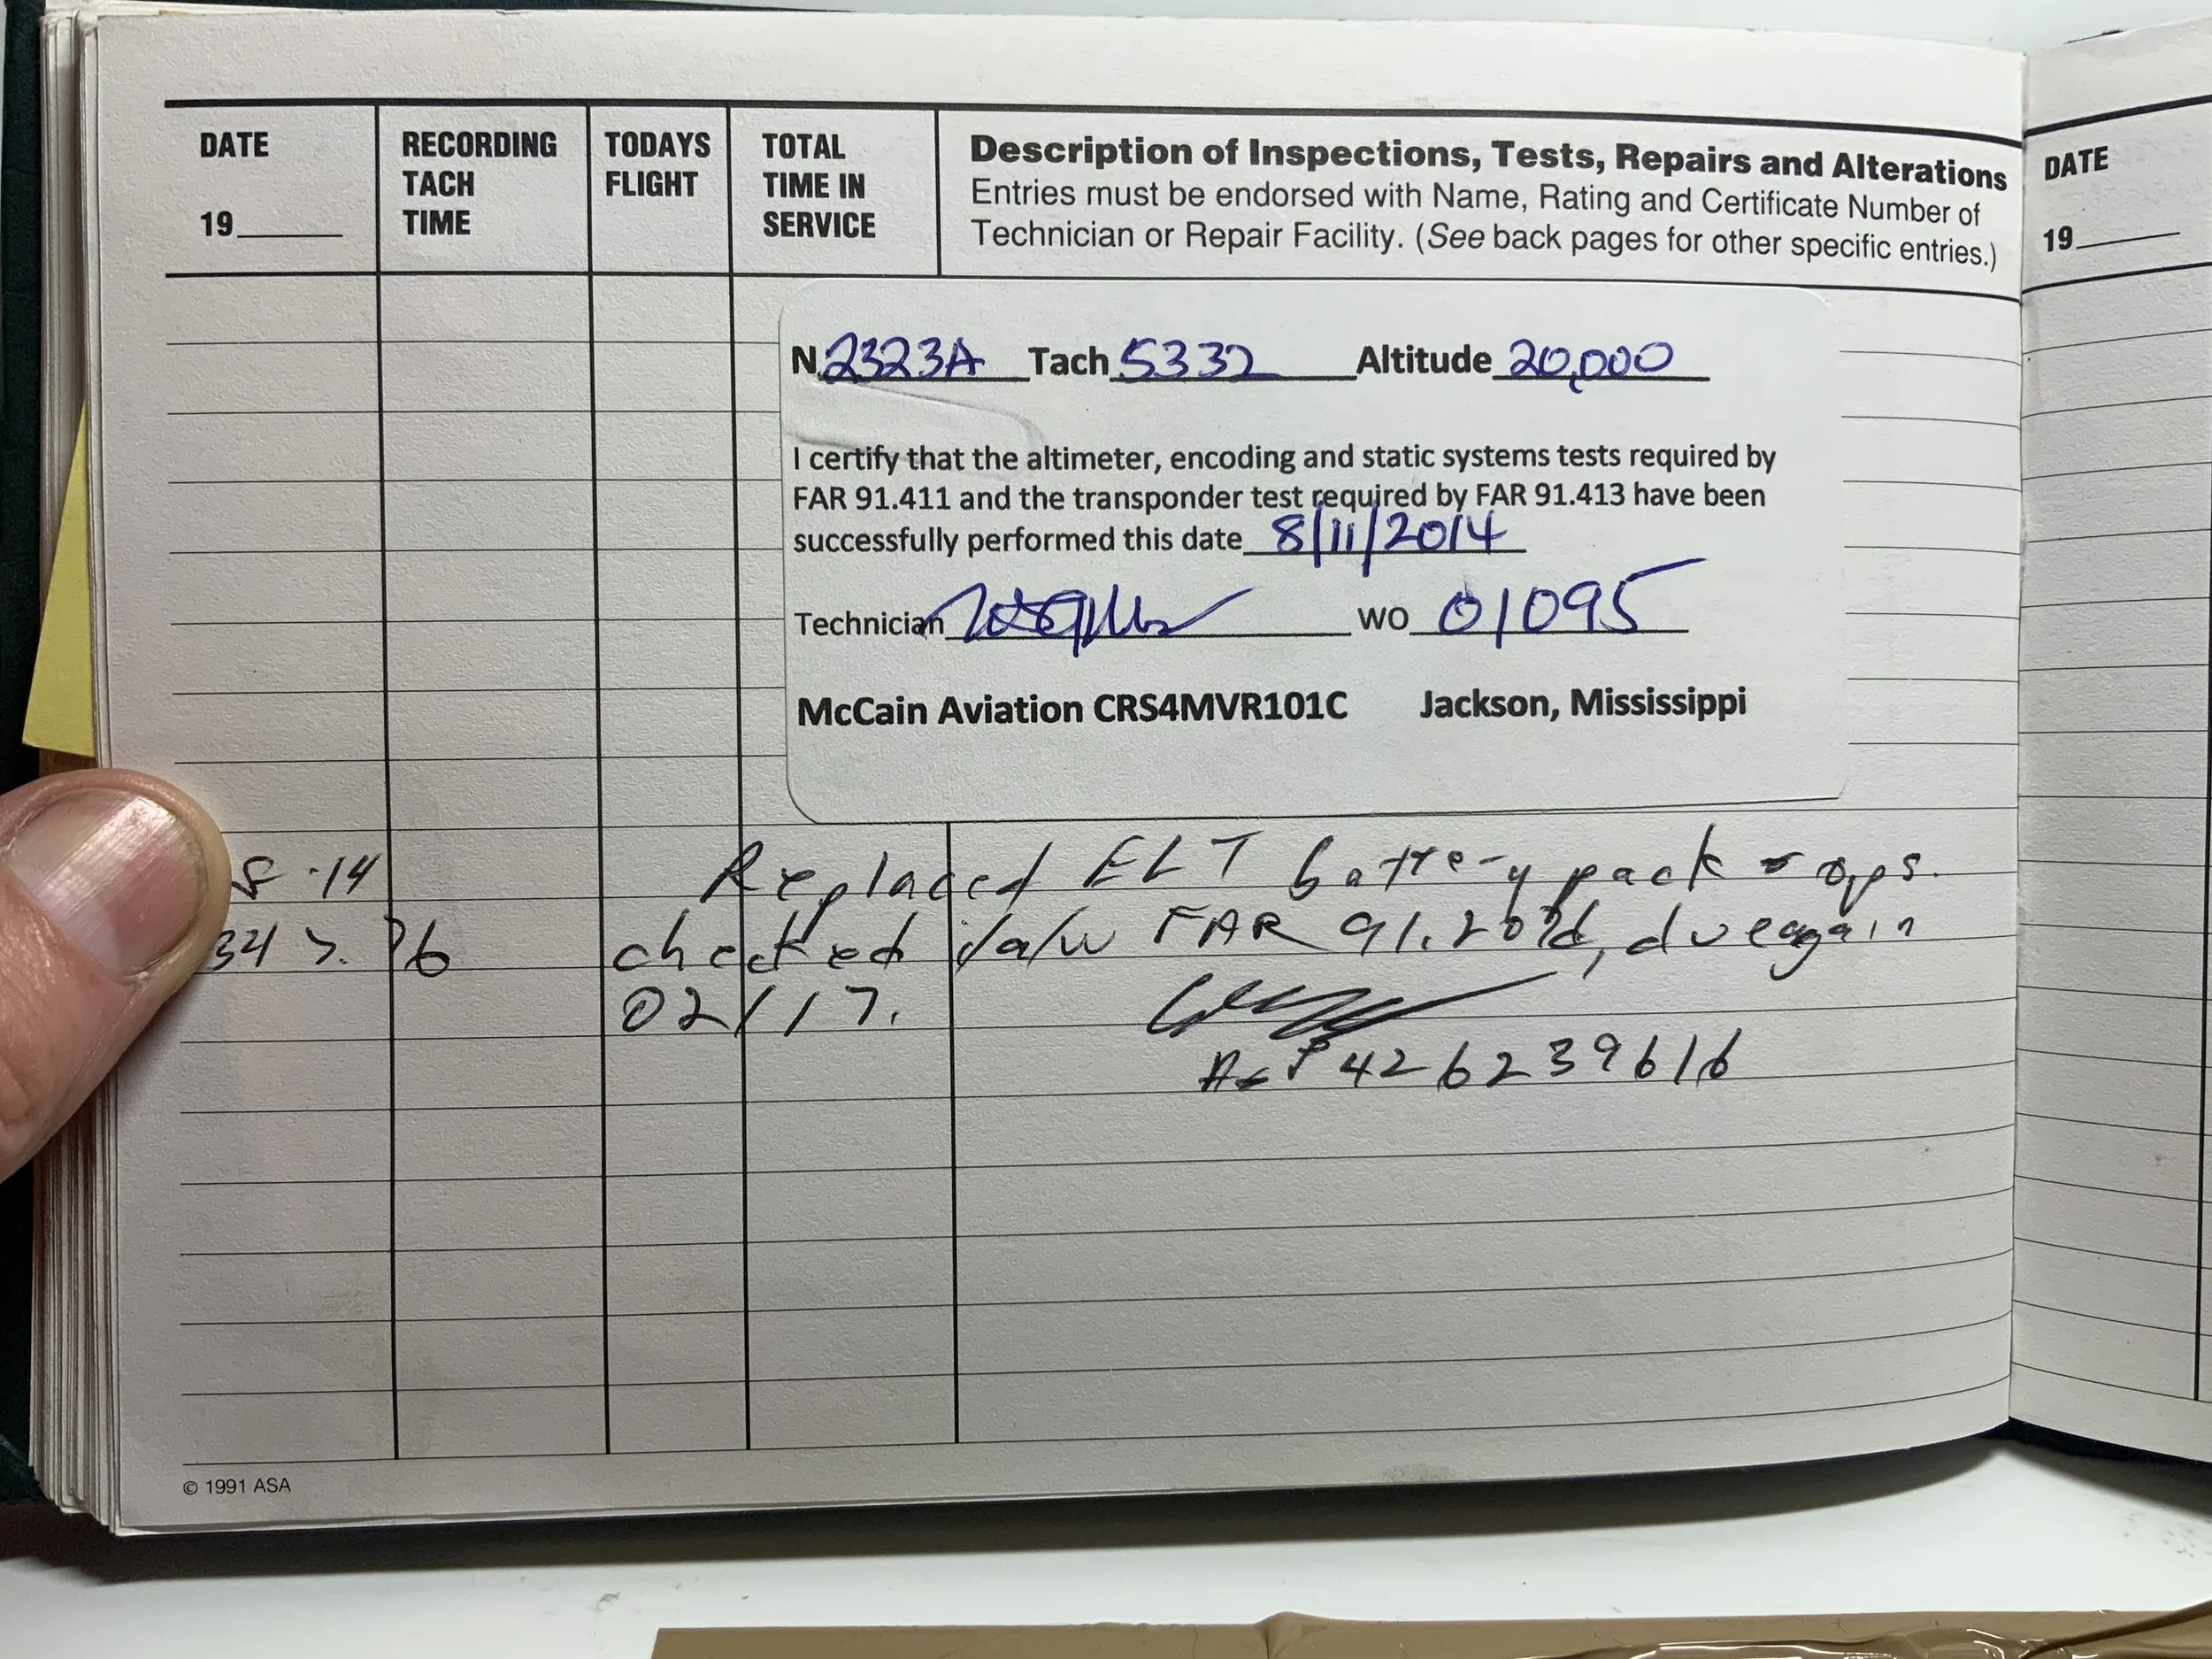 DATE
19
RECORDING
TACH
TIME
TODAYS
FLIGHT
TOTAL
TIME IN
SERVICE
Description of Inspections, Tests, Repairs and Alterations
Entries must be endorsed with Name, Rating and Certificate Number of
Technician or Repair Facility. (See back pages for other specific entries.)
N 2323A Tach 5332 Altitude 20,000
I certify that the altimeter, encoding and static systems tests required by
FAR 91.411 and the transponder test required by FAR 91.413 have been
successfully performed this date 8/11/2014
Technician WO 01095
McCain Aviation CRS4MVR101C Jackson, Mississippi
Replaced ELT battery pack ops.
checked i/a/w FAR 91.207d, due again
02/17.
A&P 426239616
© 1991 ASA
DATE
19